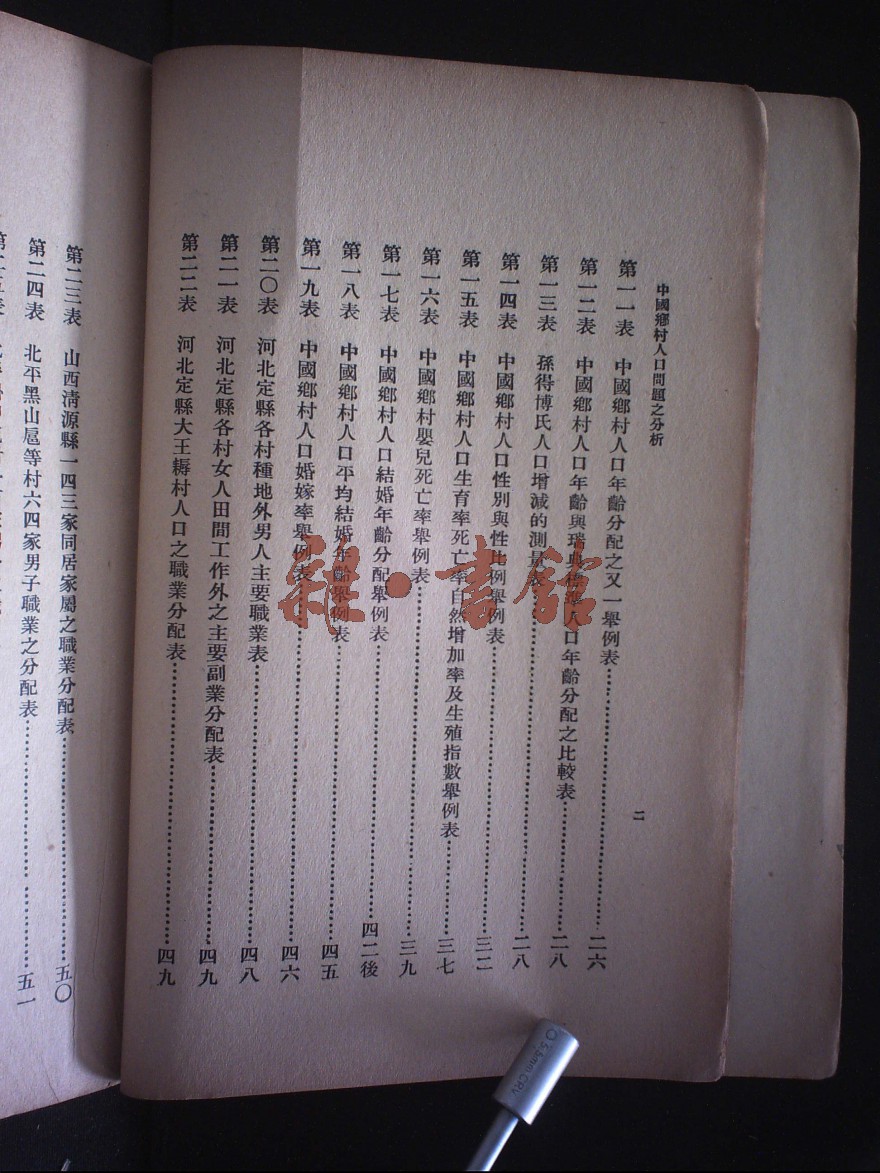 中國鄉村人口問題之分析
二
第一一表 中國鄉村人口年齡分配之又一舉例表……二六
第一二表 中國鄉村人口年齡與瑞典標準人口年齡分配之比較表……二八
第一三表 孫得博氏人口增減的測量表……二八
第一四表 中國鄉村人口性別與性比例舉例表……三二
第一五表 中國鄉村人口生育率死亡率自然增加率及生殖指數舉例表……三七
第一六表 中國鄉村嬰兒死亡率舉例表……三九
第一七表 中國鄉村人口結婚年齡分配舉例表……四二後
第一八表 中國鄉村人口平均結婚年齡舉例表……四五
第一九表 中國鄉村人口婚嫁率舉例表……四六
第二〇表 河北定縣各村種地外男人主要職業表……四八
第二一表 河北定縣各村女人田間工作外之主要副業分配表……四九
第二二表 河北定縣大王耨村人口之職業分配表……四九
第二三表 山西清源縣一四三家同居家屬之職業分配表……五〇
第二四表 北平黑山扈等村六四家男子職業之分配表……五一
雜·書館
5.5mm CRV